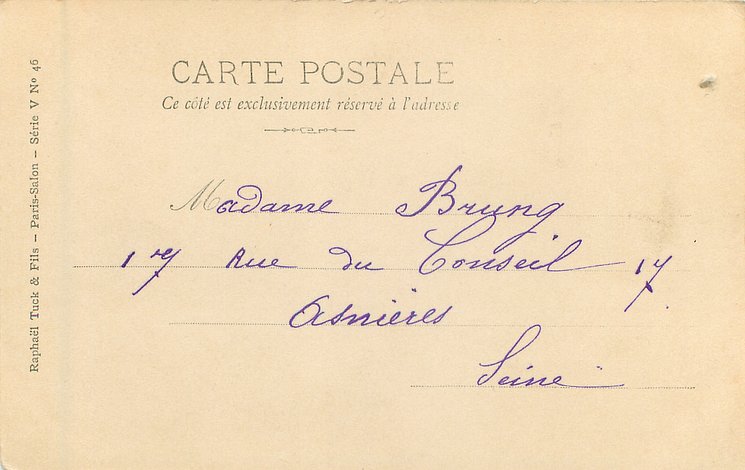 CARTE POSTALE
Ce côté est exclusivement réservé à l'adresse
Madame Brung
17 Rue du Conseil 17
Asnières
Seine
Raphaël Tuck & Fils – Paris-Salon – Série V Nº 46